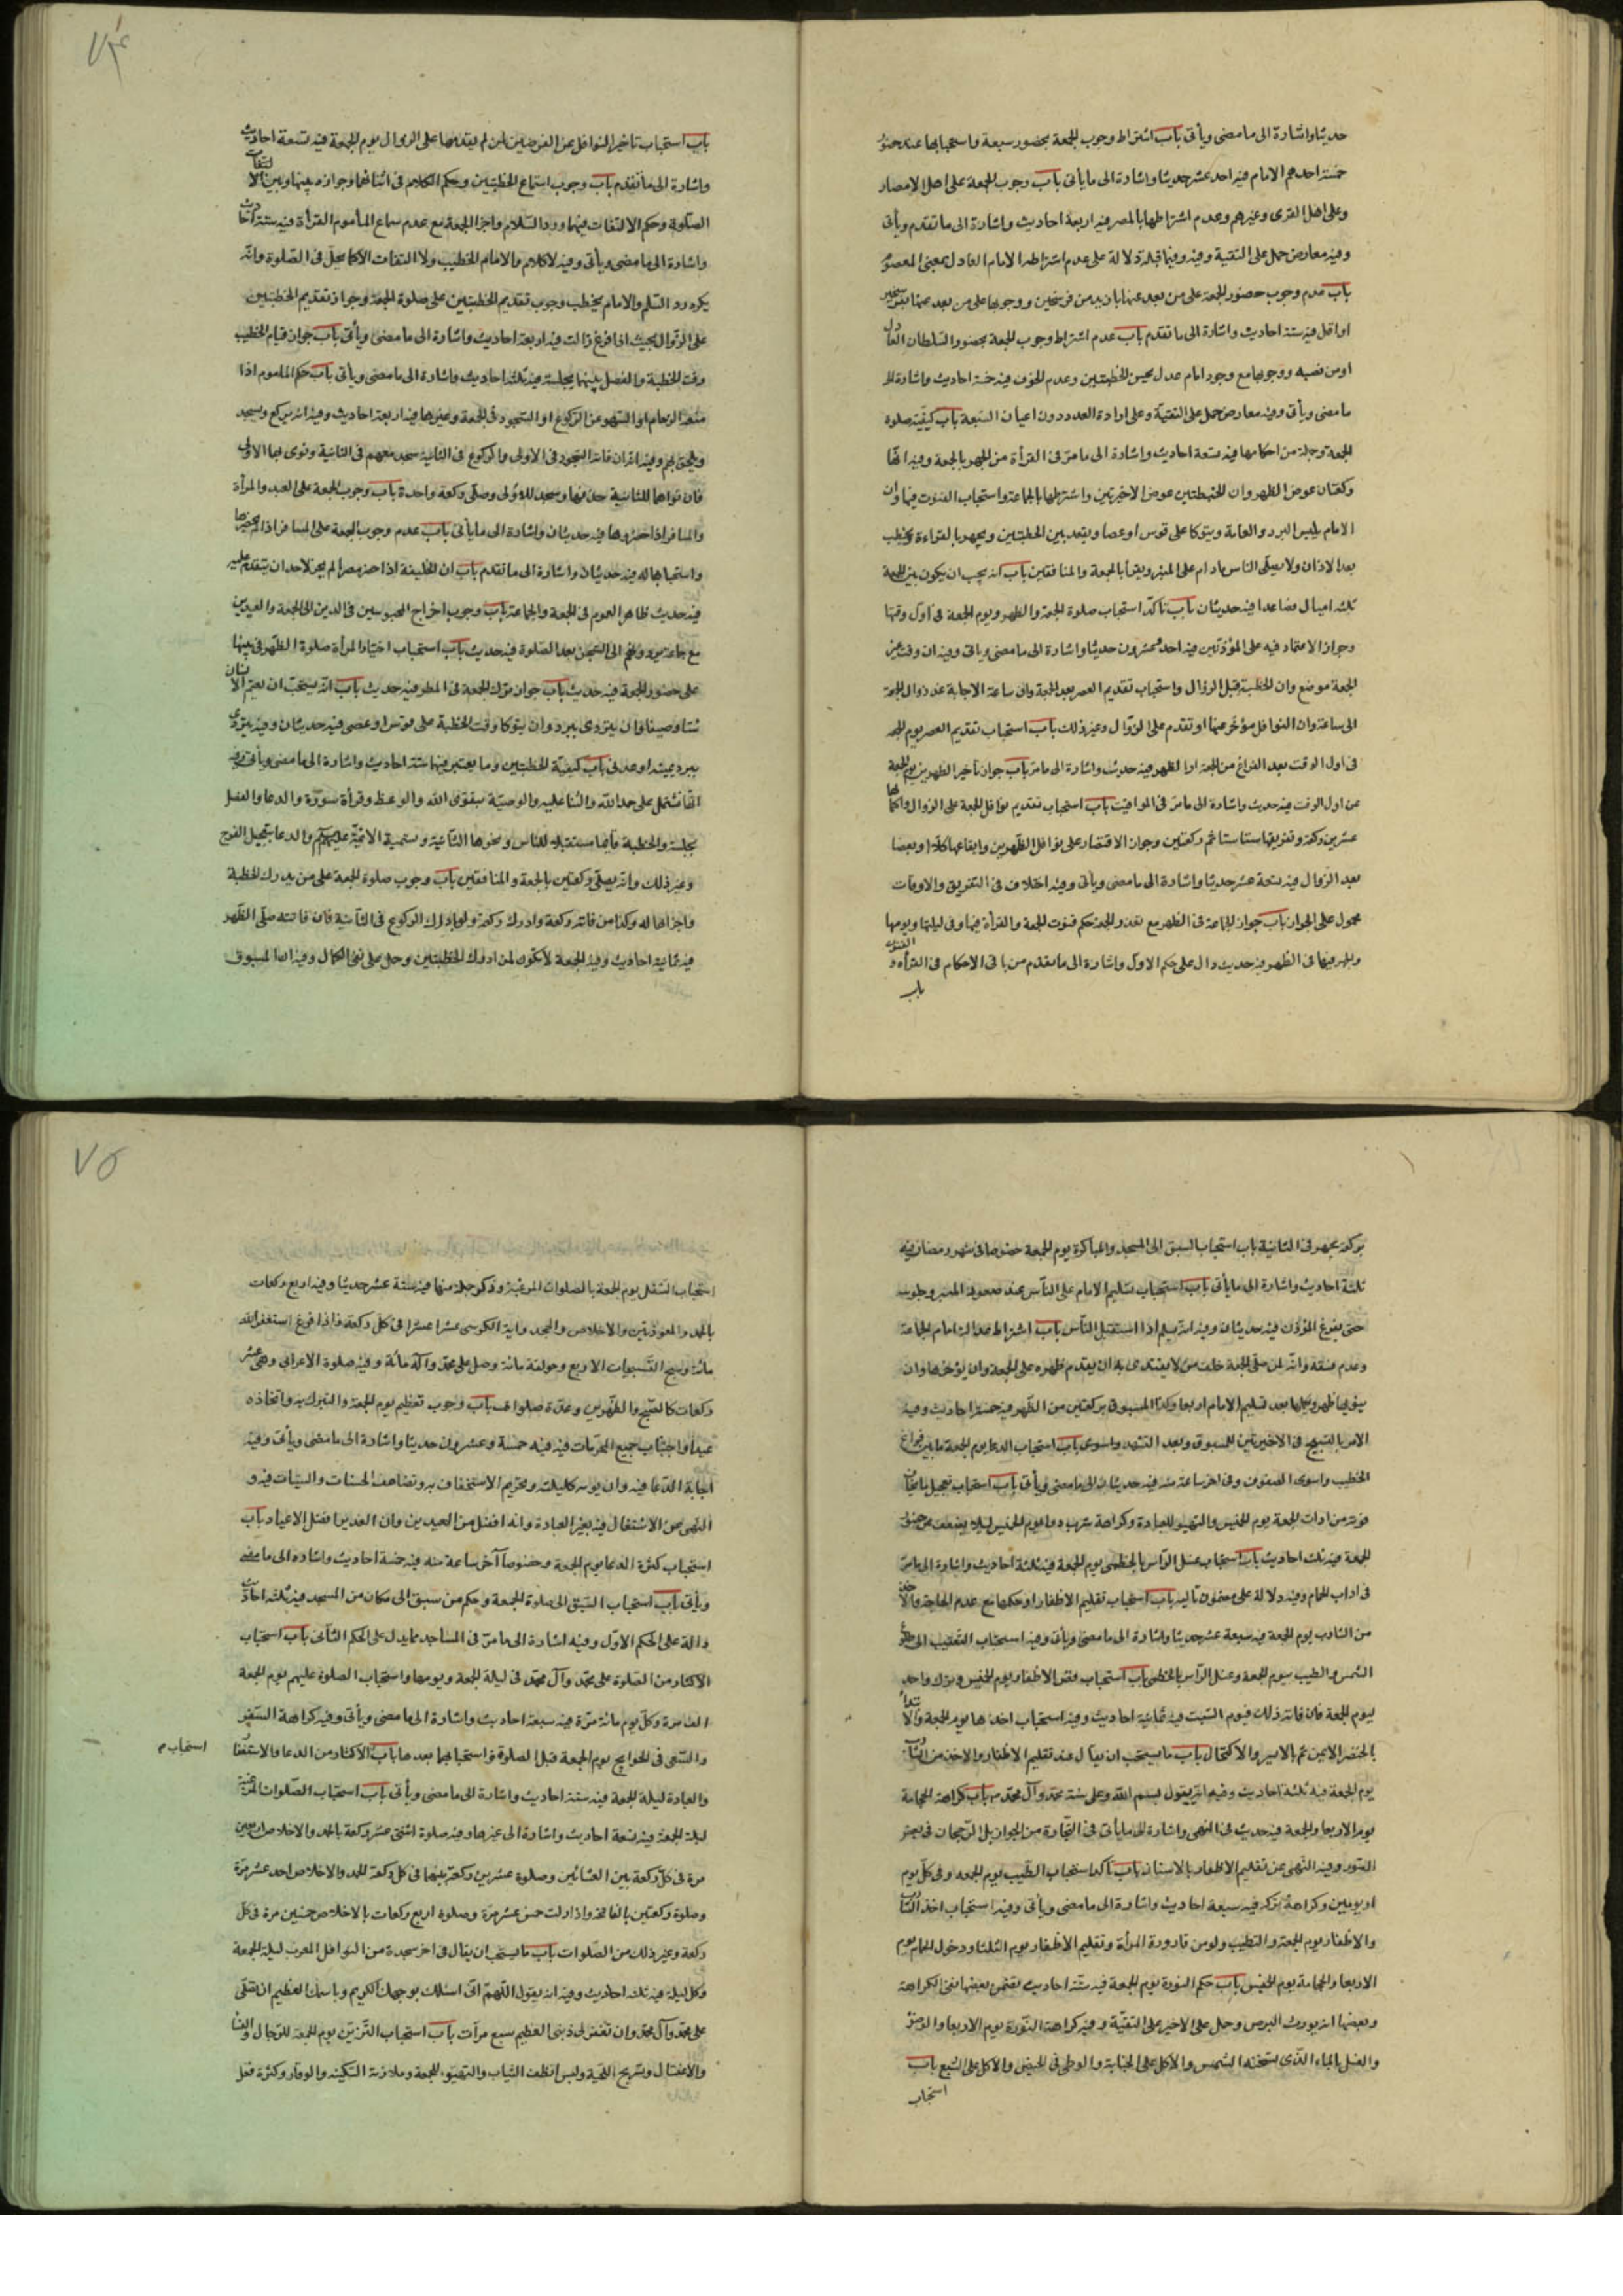 حديثا واشارة الى ما مضى ويأتى باب اشتراط وجوب الجمعة بحضور سبعة واستحبابها عند حضور
خمسة احدهم الامام فيه احد عشر حديثا واشارة الى ما يأتى باب وجوب الجمعة على اهل الامصار
وعلى اهل القرى وغيرهم وعدم اشتراطها بالمصر فيه اربعة احاديث واشارة الى ما تقدم ويأتى
وفيه معارض حمل على التقية وفيه وفيما قبله دلالة على عدم اشتراط الامام العادل بمعنى المعصوم
باب عدم وجوب حضور الجمعة على من بعد عنها بازيد من فرسخين ووجوبها على من بعد عنها بفرسخين
او اقل فيه ستة احاديث واشارة الى ما تقدم باب عدم اشتراط وجوب الجمعة بحضور السلطان العادل
او من نصبه ووجوبها مع وجود امام عدل يحسن الخطبتين وعدم الخوف فيه خمسة احاديث واشارة الى
ما مضى ويأتى وفيه معارض حمل على التقية وعلى ارادة العدد دون اعيان السبعة باب كيفية صلوة
الجمعة وجملة من احكامها فيه سبعة احاديث واشارة الى ما مر فى القرأة من الجهر بالجمعة وفيه انها
ركعتان عوض الظهر وان الخطبتين عوض الاخيرتين واشتراطها بالجماعة واستحباب القنوت فيها وان
الامام يلبس البرد والعمامة ويتوكا على قوس او عصا ويقعد بين الخطبتين ويجهر بالقراءة ويخطب
بعد الاذان ولا يصلى الناس مادام على المنبر ويقرأ بالجمعة والمنافقين باب انه يجب ان يكون بين الجمعة
ثلثة اميال فصاعدا فيه حديثان باب تاكد استحباب صلوة الجمعة والظهر ويوم الجمعة فى اول وقتها
وجواز الاعتماد فيه على المؤذنين فيه احد وعشرون حديثا واشارة الى ما مضى وياتى وفيه ان وقت عصر
الجمعة موضع وان الخطبة قبل الزوال واستحباب تقديم العصر يوم الجمعة وان ساعة الاجابة عند زوال الجمعة
الى ساعة وان النوافل مؤخر عنها او تقدم على الزوال وغير ذلك باب استحباب تقديم العصر يوم الجمعة
فى اول الوقت بعد الفراغ من الجمعة او الظهر فيه حديث واشارة الى ما مر باب جواز تأخير الظهرين يوم الجمعة
عن اول الوقت فيه حديث واشارة الى ما مر فى المواقيت باب استحباب تقديم نوافل الجمعة على الزوال واكمالها
عشرين ركعة وتفريقها ستا ستا ثم ركعتين وجواز الاقتصار على نوافل الظهرين وايقاعها كلا او بعضا
بعد الزوال فيه تسعة عشر حديثا واشارة الى ما مضى ويأتى وفيه اختلاف فى التفريق والاوقات
محمول على الجواز باب جواز الجماعة فى الظهر مع تعذر الجمعة وحكم قنوت الجمعة والقرأة فيها وفى ليلتها ويومها
والجهر فيها فى الظهر فيه حديث دال على حكم الاول واشارة الى ما تقدم من باقى الاحكام فى القرأة و القنوت
باب
باب استحباب تاخير النوافل عن الفرضين لمن لم يقدمها على الزوال يوم الجمعة فيه تسعة احاديث
واشارة الى ما تقدم باب وجوب استماع الخطبتين وحكم الكلام فى اثنائهما وجوازه بينهما وبين
الصلوة وحكم الالتفات فيهما ورد السلام واجزا الجمعة مع عدم سماع المأموم القرأة فيه ستة احاديث
واشارة الى ما مضى ويأتى وفيه لا كلام والامام يخطب ولا التفات الا كما يحل فى الصلوة وانه
يكره رد السلم والامام يخطب وجوب تقديم الخطبتين على صلوة الجمعة وجواز تقديم الخطبتين
على الزوال بحيث اذا فرغ زالت فيه اربعة احاديث واشارة الى ما مضى ويأتى باب جواز قيام الخطيب
وقت الخطبة والفصل بينهما بجلسة فيه ثلثة احاديث واشارة الى ما مضى ويأتى باب حكم الماموم اذا
منعه الزحام او السهو عن الركوع او السجود فى الجمعة وغيرها فيه اربعة احاديث وفيه انه يركع ويسجد
ويلحق بهم وفيه انه ان فاته السجود فى الاولى والركوع فى الثانية سجد معهم فى الثانية ونوى بها الاولى
فان نواها للثانية حذفها وسجد للاولى وصلى ركعة واحدة باب وجوب الجمعة على العبد والمرأة
والمسافر اذا حضروها فيه حديثان واشارة الى ما يأتى باب عدم وجوب الجمعة على المسافر اذا لم يحضرها
واستحبابها له فيه حديثان واشارة الى ما تقدم باب ان الخليفة اذا حضر مصرا لم يجز لاحد ان يتقدم عليه
فيه حديث ظاهر العموم فى الجمعة والجماعة باب وجوب اخراج المحبوسين فى الدين الى الجمعة والعيدين
مع جماعة يردونهم الى السجن بعد الصلوة فيه حديث باب استحباب اختيار المرأة صلوة الظهر فى بيتها
على حضور الجمعة فيه حديث باب جواز ترك الجمعة فى المطر فيه حديث باب انه يستحب ان يعتم الانسان
شتا وصيفا وان يتردى ببرد وان يتوكا وقت الخطبة على قوس او عصى فيه حديثان وفيه يتردى
ببرد يمنية او عدنى باب كيفية الخطبتين وما يعتبر فيهما ستة احاديث واشارة الى ما مضى ويأتى وفيه
انها تشتمل على حمد الله والثنا عليه والوصية بتقوى الله والوعظ وقرأة سورة والدعا والفصل
بجلسة والخطبة قايما مستقبلا للناس ونحوها الثانية وتسمية الائمة عليهم والدعا بتعجيل الفرج
وغير ذلك وانه يصلى ركعتين بالجمعة والمنافقين باب وجوب صلوة الجمعة على من يدرك الخطبة
واجزائها له وكذا من فاته ركعة وادرك ركعة ولو بادراك الركوع فى الثانية فان فاتته صلى الظهر
فيه ثمانية احاديث وفيه الجمعة لا تكون لمن ادرك الخطبتين وحمل على نفى الكمال وفيه ان المسبوق
بركعة يجهر فى الثانية باب استحباب السبق الى المسجد والمباكرة يوم الجمعة خصوصا فى شهر رمضان فيه
ثلثة احاديث واشارة الى ما يأتى باب استحباب تسليم الامام على الناس عند صعوده المنبر وجلوسه
حتى يفرغ المؤذن فيه حديثان وفيه انه يسلم اذا استقبل الناس باب اشتراط عدالة امام الجماعة
وعدم فسقه وانه لمن صلى الجمعة خلف من لا يقتدى به ان يقدم ظهره على الجمعة وان يؤخرها وان
ينويها ظهرا ويكملها بعد تسليم الامام اربعا وكذا المسبوق بركعتين من الظهر فيه خمسة احاديث وفيه
الامر بالتسبيح فى الاخيرتين للمسبوق وبعد التشهد باب استحباب الدعا يوم الجمعة ما بين فراغ
الخطيب واستوى الصفوف وفى اخر ساعة منه فيه حديثان الى ما مضى ويأتى باب استحباب تعجيل ما يخاف
فوته من اداب الجمعة يوم الخميس والتهيؤ للعبادة وكراهة شرب دواء يوم الخميس ليلا يضعف عن حضور
الجمعة فيه ثلث احاديث باب استحباب غسل الرأس بالخطمى يوم الجمعة فيه ثلثة احاديث واشارة الى ما مر
فى اداب الحمام وفيه دلالة على مضمون تاليه باب استحباب تقليم الاظفار وحكمها مع عدم الحاجة والاخذ
من الشارب يوم الجمعة فيه سبعة عشر حديثا واشارة الى ما مضى ويأتى وفيه استحباب التعقيب الى طلوع
الشمس والطيب يوم الجمعة وغسل الرأس بالخطمى باب استحباب قص الاظفار يوم الخميس وترك واحد
ليوم الجمعة فان فاته ذلك فيوم السبت فيه ثمانية احاديث وفيه استحباب اخذها يوم الجمعة والابتداء
بالخنصر الايمن ثم بالايسر والاكتحال باب ما يستحب ان يقال عند تقليم الاظفار والاخذ من الشارب
يوم الجمعة فيه ثلثة احاديث وفيه انه يقول بسم الله وعلى سنة محمد وآل محمد باب كراهة الحجامة
يوم الاربعا والجمعة فيه حديث فى النهى واشارة الى ما يأتى فى التجارة من الجواز بل الرجحان فى بعض
الصور وفيه النهى عن تقليم الاظفار بالاسنان باب تاكد استحباب الطيب يوم الجمعة وفى كل يوم
او يومين وكراهة تركه فيه سبعة احاديث واشارة الى ما مضى ويأتى وفيه استحباب اخذ الشارب
والاظفار يوم الجمعة والتطيب ولو من قارورة المرأة وتقليم الاظفار يوم الثلثا ودخول الحمام يوم
الاربعا والحجامة يوم الخميس باب حكم النورة يوم الجمعة فيه ستة احاديث يتضمن بعضها نفى الكراهة
وبعضها انه يورث البرص وحمل على الاخير على التقية وفيه كراهة النورة يوم الاربعا والوضوء
والغسل بالماء الذى يسخنه الشمس والاكل على الجنابة والوطى فى الحيض والاكل على الشبع باب
استحباب
استحباب التنفل يوم الجمعة بالصلوات المرغبة وذكر جملة منها فيه ستة عشر حديثا وفيه اربع ركعات
بالحمد والمعوذتين والاخلاص والجحد واية الكرسى عشرا عشرا فى كل ركعة فاذا فرغ استغفر الله
مائة وسبح التسبيحات الاربع وحولقة مائة وصلى على محمد وآله مائة وفيه صلوة الاعرابى وهى عشر
ركعات كالصبح والظهرين وعدة صلوات باب وجوب تعظيم يوم الجمعة والتبرك به واتخاذه
عيدا واجتناب جميع المحرمات فيه فيه خمسة وعشرون حديثا واشارة الى ما مضى ويأتى وفيه
اجابة الدعا فيه وان يومه كليلته وتحريم الاستخفاف به وتضاعف الحسنات والسيئات فيه و
النهى عن الاشتغال فيه بغير العبادة وانه افضل من العيدين وان الغدير افضل الاعياد باب
استحباب كثرة الدعا يوم الجمعة وخصوصا آخر ساعة منه فيه خمسة احاديث واشارة الى ما مضى
ويأتى باب استحباب السبق الى صلوة الجمعة وحكم من سبق الى مكان من المسجد فيه ثلثة احاديث
دالة على الحكم الاول وفيه اشارة الى ما مر فى المساجد مما يدل على الحكم الثانى باب استحباب
الاكثار من الصلوة على محمد وآل محمد فى ليلة الجمعة ويومها واستحباب الصلوة عليهم يوم الجمعة
الف مرة وكل يوم مائة مرة فيه سبعة احاديث واشارة الى ما مضى ويأتى وفيه كراهة السفر
والسعى فى الحوايج يوم الجمعة قبل الصلوة واستحبابهما بعدها باب الاكثار من الدعا والاستغفار
استحباب م
والعبادة ليلة الجمعة فيه ستة احاديث واشارة الى ما مضى ويأتى باب استحباب الصلوات المرغبة
ليلة الجمعة فيه تسعة احاديث واشارة الى غيرها وفيه صلوة اثنتى عشر ركعة بالحمد والاخلاص اربعين
مرة فى كل ركعة بين العشائين وصلوة عشرين ركعة بينهما فى كل ركعة الحمد والاخلاص احد عشر مرة
وصلوة ركعتين بالفاتحة واذا زلزلت خمس عشر مرة وصلوة اربع ركعات بالاخلاص خمسين مرة فى كل
ركعة وغير ذلك من الصلوات باب ما يستحب ان يقال فى اخر سجدة من النوافل المغرب ليلة الجمعة
وكل ليلة فيه ثلثة احاديث وفيه انه يقول اللهم انى اسئلك بوجهك الكريم وباسمك العظيم ان تصلى
على محمد وآل محمد وان تغفر لى ذنبى العظيم سبع مرات باب استحباب التزين يوم الجمعة للرجال والنسا
والاغتسال وتسريح اللحية ولبس انظف الثياب والتهيؤ للجمعة وملازمة السكينة والوقار وكثرة فعل
٧٤
٧٥